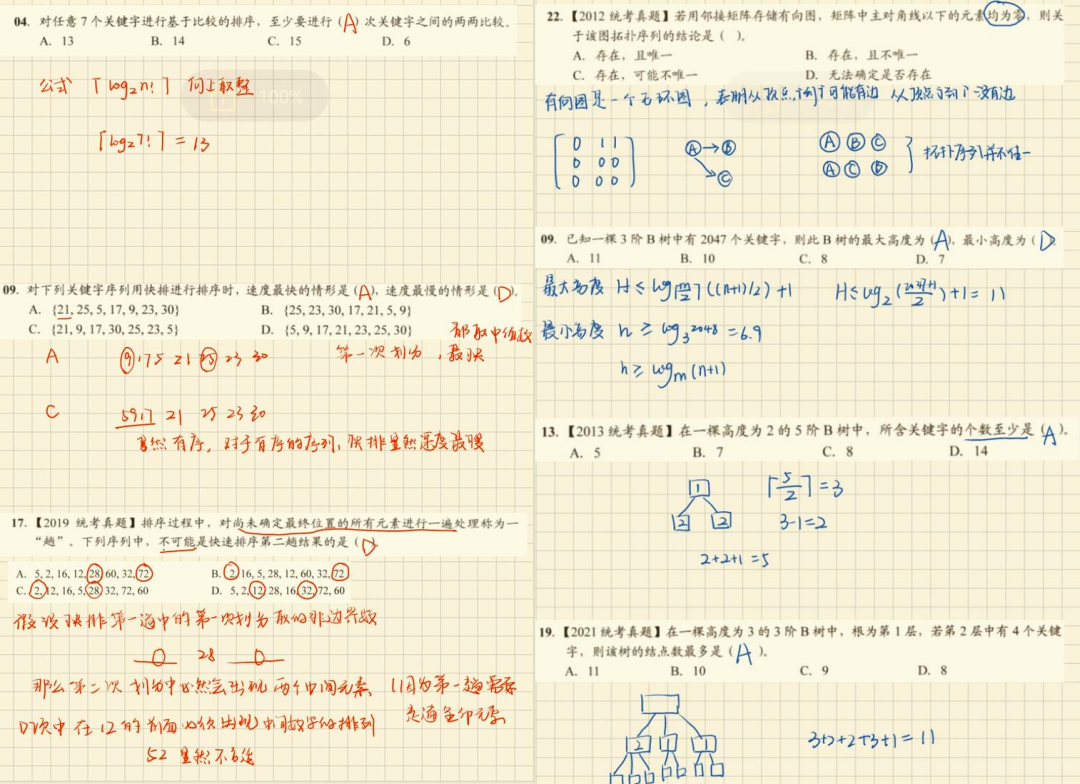 04. 对任意7个关键字进行基于比较的排序，至少要进行（A）次关键字之间的两两比较。
A. 13 B. 14 C. 15 D. 6
公式 ⌈log₂n!⌉ 向上取整
100%
⌈log₂7!⌉ = 13
09. 对下列关键字序列用快排进行排序时，速度最快的情形是（A），速度最慢的情形是（D）。
A. {21, 25, 5, 17, 9, 23, 30} B. {25, 23, 30, 17, 21, 5, 9}
C. {21, 9, 17, 30, 25, 23, 5} D. {5, 9, 17, 21, 23, 25, 30}
都取中位数
A ⑨ 17 5 21 25 23 30 第一次划分，最快
C 5 9 17 21 25 23 30
显然有序，对于有序的序列，快排显然速度最慢
17.【2019 统考真题】排序过程中，对尚未确定最终位置的所有元素进行一遍处理称为一
“趟”。下列序列中，不可能是快速排序第二趟结果的是（D
A. 5, 2, 16, 12, 28, 60, 32, 72 B. 2, 16, 5, 28, 12, 60, 32, 72
C. 2, 12, 16, 5, 28, 32, 72, 60 D. 5, 2, 12, 28, 16, 32, 72, 60
假设快排第一趟中的第一次划分取的非边界数
0 28 0
那么第二次划分中必然会出现两个中间元素，
D项中在12的前面必须出现中间数字的排列
52 显然不合适
22.【2012 统考真题】若用邻接矩阵存储有向图，矩阵中主对角线以下的元素均为零，则关
于该图拓扑序列的结论是（ ）。
A. 存在，且唯一 B. 存在，且不唯一
C. 存在，可能不唯一 D. 无法确定是否存在
有向图是一个无环图，表明从顶点i到j可能有边 从顶点j到i没有边
0 1 1 A → B A B C
0 0 0 拓扑序列并不唯一
0 0 0 C A C B
09. 已知一棵3阶B树中有2047个关键字，则此B树的最大高度为（A），最小高度为（D
A. 11 B. 10 C. 8 D. 7
最大高度 H ≤ log⌈m/2⌉((n+1)/2) + 1 H ≤ log₂(2047+1/2) + 1 = 11
最小高度 h ≥ log₃2048 = 6.9
h ≥ logm(n+1)
13.【2013 统考真题】在一棵高度为2的5阶B树中，所含关键字的个数至少是（A）。
A. 5 B. 7 C. 8 D. 14
1 ⌈5/2⌉ = 3
2 2 3-1=2
2+2+1=5
19.【2021 统考真题】在一棵高度为3的3阶B树中，根为第1层，若第2层中有4个关键
字，则该树的结点数最多是（A）。
A. 11 B. 10 C. 9 D. 8
2 1 1 3+2+2+3+1=11